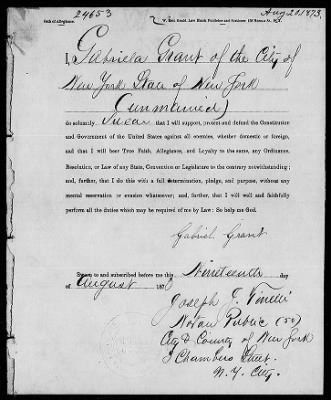 24653
Aug 20. 1873.
Oath of Allegiance.
I, Gabriela Grant of the City of
New York State of New York
(unmarried)
do solemnly Swear that I will support, protect and defend the Constitution
and Government of the United States against all enemies, whether domestic or foreign,
and that I will bear True Faith, Allegiance, and Loyalty to the same, any Ordinance,
Resolution, or Law of any State, Convention or Legislature to the contrary notwithstanding;
and, further, that I do this with a full determination, pledge, and purpose, without any
mental reservation or evasion whatsoever; and, further, that I will well and faithfully
perform all the duties which may be required of me by Law: So help me God.
Gabriel Grant
Sworn to and subscribed before me this Nineteenth day
of August 1873
Joseph F. Finelli
Notary Public (50)
City & County of New York
Chambers Street.
N. Y. City.